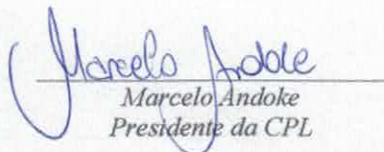 Marcelo Andoke
Marcelo Andoke
Presidente da CPL